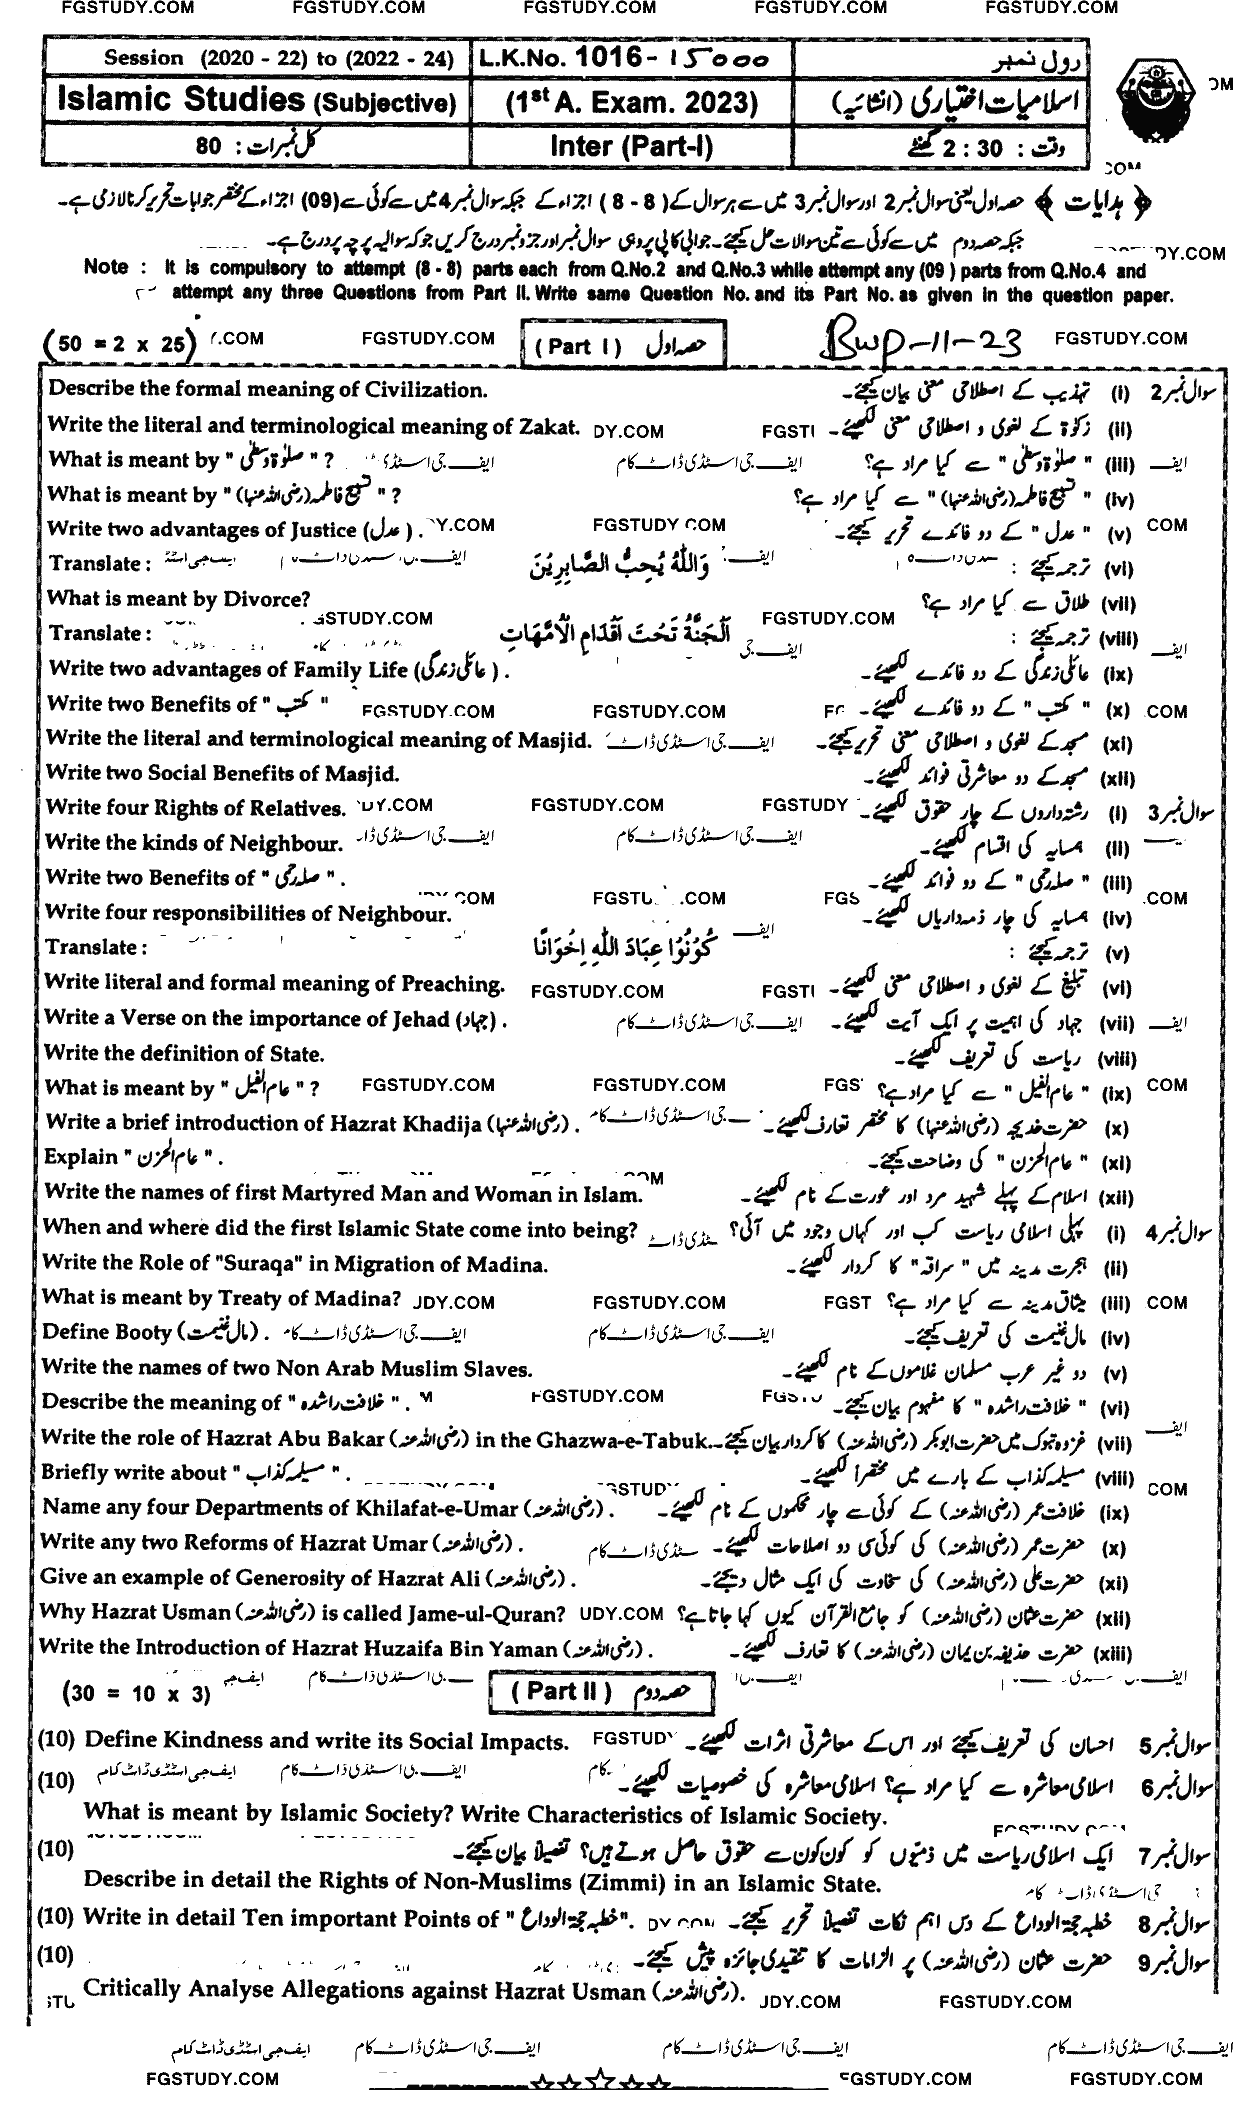 FGSTUDY.COM FGSTUDY.COM FGSTUDY.COM FGSTUDY.COM FGSTUDY.COM
Session (2020 - 22) to (2022 - 24) L.K.No. 1016 - 15000 رول نمبر
Islamic Studies (Subjective) (1st A. Exam. 2023) اسلامیات اختیاری (انشائیہ)
کل نمبرات : 80 Inter (Part-I) وقت : 2 : 30 گھنٹے
﴿ ہدایات ﴾ حصہ اول یعنی سوال نمبر 2 اور سوال نمبر 3 میں سے ہر سوال کے (8 - 8) اجزاء کے جبکہ سوال نمبر 4 میں سے کوئی سے (09) اجزاء کے مختصر جوابات تحریر کرنا لازمی ہے۔
جبکہ حصہ دوم میں سے کوئی سے تین سوالات حل کیجئے۔ جوابی کاپی پر وہی سوال نمبر اور جزو نمبر درج کریں جو کہ سوالیہ پرچہ پر درج ہے۔
Note : It is compulsory to attempt (8 - 8) parts each from Q.No.2 and Q.No.3 while attempt any (09) parts from Q.No.4 and
attempt any three Questions from Part II. Write same Question No. and its Part No. as given in the question paper.
(50 = 2 x 25) FGSTUDY.COM (Part I) حصہ اول Bwp-11-23 FGSTUDY.COM
Describe the formal meaning of Civilization. سوال نمبر 2 (i) تہذیب کے اصطلاحی معنی بیان کیجئے۔
Write the literal and terminological meaning of Zakat. (ii) زکوٰۃ کے لغوی و اصطلاحی معنی لکھیئے۔
What is meant by " صلوٰۃ وسطیٰ " ? (iii) " صلوٰۃ وسطیٰ " سے کیا مراد ہے؟
What is meant by " تسبیح فاطمہ (رضی اللہ عنہا) " ? (iv) " تسبیح فاطمہ (رضی اللہ عنہا) " سے کیا مراد ہے؟
Write two advantages of Justice (عدل) . FGSTUDY.COM (v) " عدل " کے دو فائدے تحریر کیجئے۔
Translate : وَاللّٰهُ يُحِبُّ الصَّابِرِيْنَ (vi) ترجمہ کیجئے :
What is meant by Divorce? (vii) طلاق سے کیا مراد ہے؟
Translate : اَلْجَنَّةُ تَحْتَ اَقْدَامِ الْاُمَّهَاتِ (viii) ترجمہ کیجئے :
Write two advantages of Family Life (عائلی زندگی) . (ix) عائلی زندگی کے دو فائدے لکھیئے۔
Write two Benefits of " مکتب " FGSTUDY.COM FGSTUDY.COM (x) " مکتب " کے دو فائدے لکھیئے۔
Write the literal and terminological meaning of Masjid. (xi) مسجد کے لغوی و اصطلاحی معنی تحریر کیجئے۔
Write two Social Benefits of Masjid. (xii) مسجد کے دو معاشرتی فوائد لکھیئے۔
Write four Rights of Relatives. FGSTUDY.COM سوال نمبر 3 (i) رشتہ داروں کے چار حقوق لکھیئے۔
Write the kinds of Neighbour. (ii) ہمسایہ کی اقسام لکھیئے۔
Write two Benefits of " صلہ رحمی " . (iii) " صلہ رحمی " کے دو فوائد لکھیئے۔
Write four responsibilities of Neighbour. (iv) ہمسایہ کی چار ذمہ داریاں لکھیئے۔
Translate : كُوْنُوْا عِبَادَ اللّٰهِ اِخْوَانًا (v) ترجمہ کیجئے :
Write literal and formal meaning of Preaching. FGSTUDY.COM (vi) تبلیغ کے لغوی و اصطلاحی معنی لکھیئے۔
Write a Verse on the importance of Jehad (جہاد) . (vii) جہاد کی اہمیت پر ایک آیت لکھیئے۔
Write the definition of State. (viii) ریاست کی تعریف لکھیئے۔
What is meant by " عام الفیل " ? FGSTUDY.COM FGSTUDY.COM (ix) " عام الفیل " سے کیا مراد ہے؟
Write a brief introduction of Hazrat Khadija (رضی اللہ عنہا) . (x) حضرت خدیجہ (رضی اللہ عنہا) کا مختصر تعارف لکھیئے۔
Explain " عام الحزن " . (xi) " عام الحزن " کی وضاحت کیجئے۔
Write the names of first Martyred Man and Woman in Islam. (xii) اسلام کے پہلے شہید مرد اور عورت کے نام لکھیئے۔
When and where did the first Islamic State come into being? سوال نمبر 4 (i) پہلی اسلامی ریاست کب اور کہاں وجود میں آئی؟
Write the Role of "Suraqa" in Migration of Madina. (ii) ہجرت مدینہ میں " سراقہ " کا کردار لکھیئے۔
What is meant by Treaty of Madina? FGSTUDY.COM (iii) میثاق مدینہ سے کیا مراد ہے؟
Define Booty (مال غنیمت) . (iv) مال غنیمت کی تعریف کیجئے۔
Write the names of two Non Arab Muslim Slaves. (v) دو غیر عرب مسلمان غلاموں کے نام لکھیئے۔
Describe the meaning of " خلافت راشدہ " . FGSTUDY.COM (vi) " خلافت راشدہ " کا مفہوم بیان کیجئے۔
Write the role of Hazrat Abu Bakar (رضی اللہ عنہ) in the Ghazwa-e-Tabuk. (vii) غزوہ تبوک میں حضرت ابوبکر (رضی اللہ عنہ) کا کردار بیان کیجئے۔
Briefly write about " مسیلمہ کذاب " . (viii) مسیلمہ کذاب کے بارے میں مختصراً لکھیئے۔
Name any four Departments of Khilafat-e-Umar (رضی اللہ عنہ) . (ix) خلافت عمر (رضی اللہ عنہ) کے کوئی سے چار محکموں کے نام لکھیئے۔
Write any two Reforms of Hazrat Umar (رضی اللہ عنہ) . (x) حضرت عمر (رضی اللہ عنہ) کی کوئی سی دو اصلاحات لکھیئے۔
Give an example of Generosity of Hazrat Ali (رضی اللہ عنہ) . (xi) حضرت علی (رضی اللہ عنہ) کی سخاوت کی ایک مثال دیجئے۔
Why Hazrat Usman (رضی اللہ عنہ) is called Jame-ul-Quran? (xii) حضرت عثمان (رضی اللہ عنہ) کو جامع القرآن کیوں کہا جاتا ہے؟
Write the Introduction of Hazrat Huzaifa Bin Yaman (رضی اللہ عنہ) . (xiii) حضرت حذیفہ بن یمان (رضی اللہ عنہ) کا تعارف لکھیئے۔
(30 = 10 x 3) (Part II) حصہ دوم
(10) Define Kindness and write its Social Impacts. سوال نمبر 5 احسان کی تعریف کیجئے اور اس کے معاشرتی اثرات لکھیئے۔
(10) سوال نمبر 6 اسلامی معاشرہ سے کیا مراد ہے؟ اسلامی معاشرہ کی خصوصیات لکھیئے۔
What is meant by Islamic Society? Write Characteristics of Islamic Society.
(10) سوال نمبر 7 ایک اسلامی ریاست میں ذمیوں کو کون کون سے حقوق حاصل ہوتے ہیں؟ تفصیلاً بیان کیجئے۔
Describe in detail the Rights of Non-Muslims (Zimmi) in an Islamic State.
(10) Write in detail Ten important Points of " خطبہ حجۃ الوداع ". سوال نمبر 8 خطبہ حجۃ الوداع کے دس اہم نکات تفصیلاً تحریر کیجئے۔
(10) سوال نمبر 9 حضرت عثمان (رضی اللہ عنہ) پر الزامات کا تنقیدی جائزہ پیش کیجئے۔
Critically Analyse Allegations against Hazrat Usman (رضی اللہ عنہ). FGSTUDY.COM
ایف جی اسٹڈی ڈاٹ کام ایف جی اسٹڈی ڈاٹ کام ایف جی اسٹڈی ڈاٹ کام ایف جی اسٹڈی ڈاٹ کام
FGSTUDY.COM FGSTUDY.COM FGSTUDY.COM